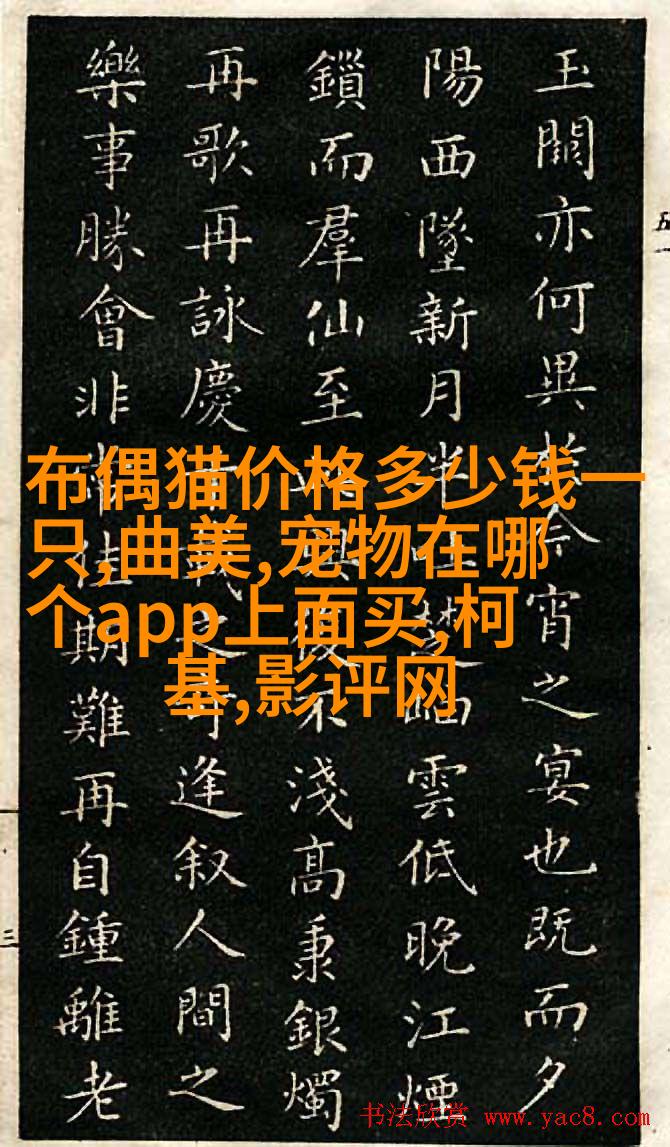 玉闕亦何異今宵之宴也既而夕
陽西墜新月半吐楚岫雲低晚江煙
鎖而羣仙至興復不淺高秉銀燭
再歌再詠慶載之奇逢叙人間之
樂事勝會非佳期難再自鍾離老
布偶猫价格多少钱一
只,曲美,宠物在哪
个app上面买,柯
基,影评网
五
三
书法欣赏 www.yac8.com